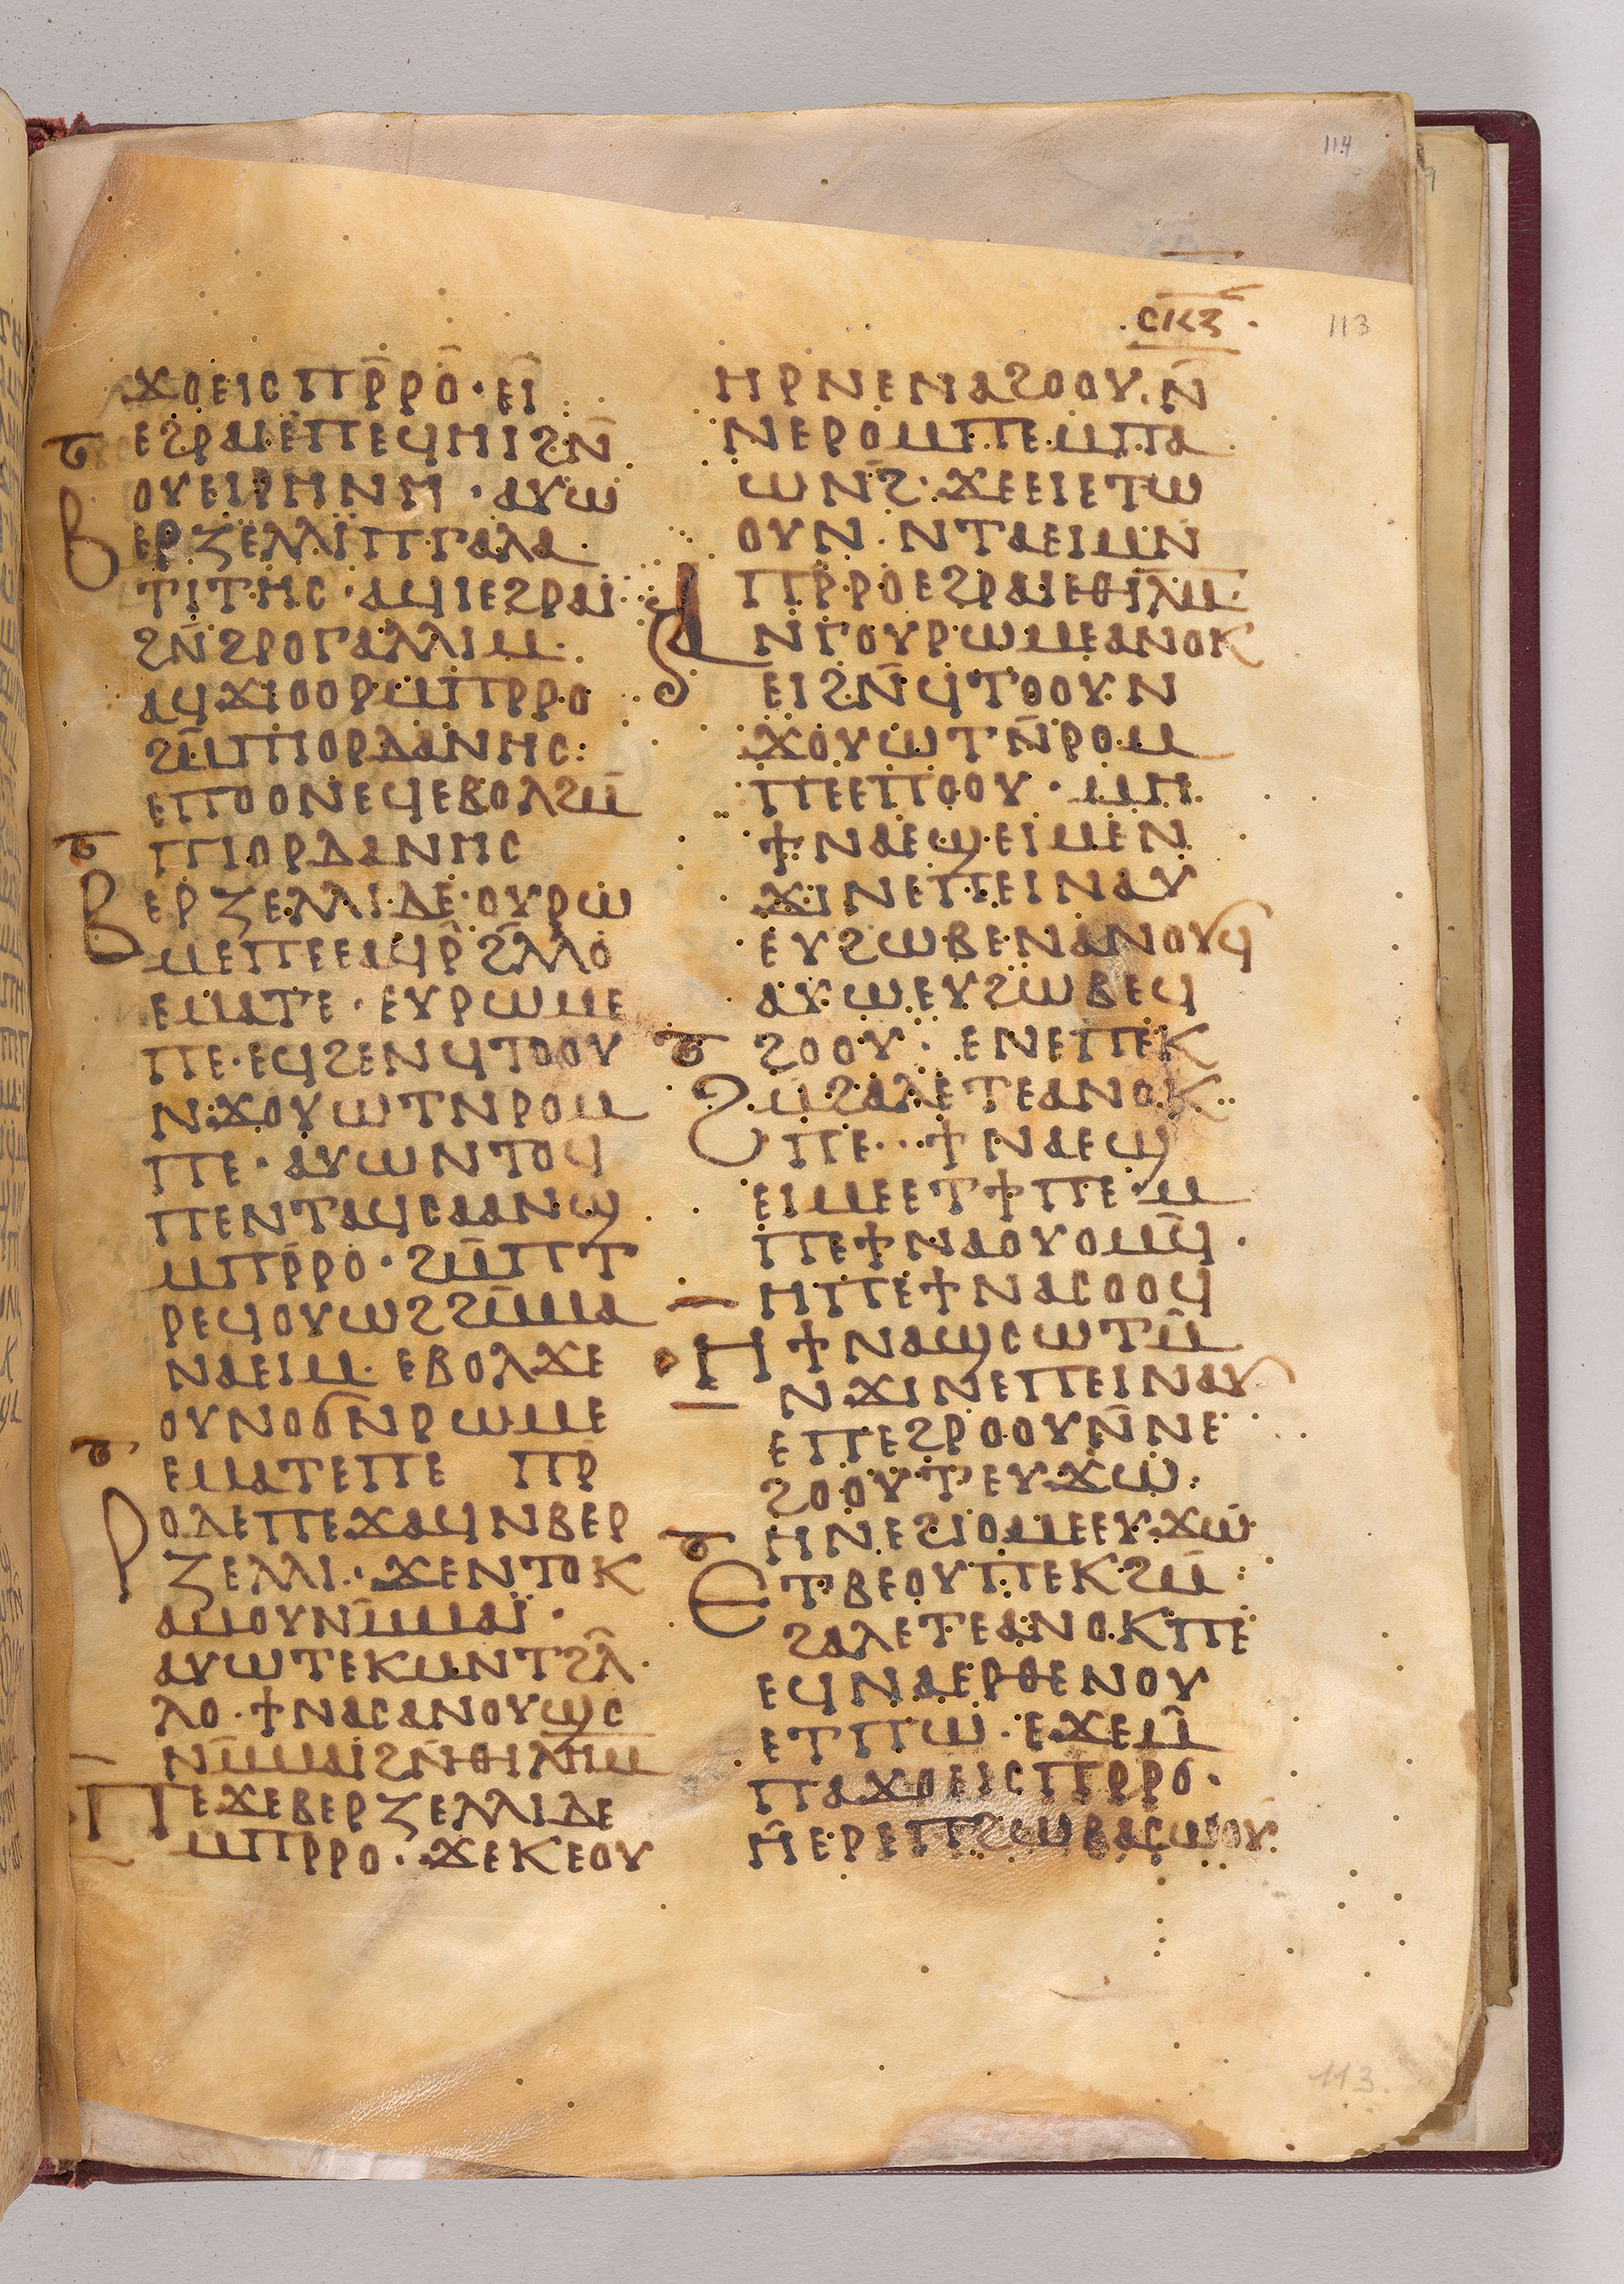 114
ⲥⲕⲍ
113
ϫⲟⲉⲓⲥⲡⲣ̄ⲣⲟ̄·ⲉⲓ̄
ⲉϩⲣⲁⲓⲉⲡⲉϥⲏⲓϩⲛ̄
ⲟⲩⲉⲓⲣⲏⲛⲏ·ⲁⲩⲱ
ⲃⲉⲣⲍⲉⲗⲗⲓ̈ⲡⲅⲁⲗⲁ
ⲧⲓⲧⲏⲥ·ⲁϥⲓⲉϩⲣⲁⲓ̈
ϩⲛ̄ϩⲣⲟⲅⲁⲗⲗⲓⲙ·
ⲁϥϫⲓⲟⲟⲣⲙⲡⲣⲣⲟ
ϩⲙ̄ⲡⲓⲟⲣⲇⲁⲛⲏⲥ:
ⲉⲡⲟⲟⲛⲉϥⲉⲃⲟⲗϩⲙ̄
ⲡⲓⲟⲣⲇⲁⲛⲏⲥ
ⲃⲉⲣⲍⲉⲗⲗⲓⲇⲉ·ⲟⲩⲣⲱ
ⲙⲉⲡⲉⲉⲁϥⲣ̄ϩⲗ̄ⲗⲟ
ⲉⲙⲁⲧⲉ·ⲉⲩⲣⲱⲙⲉ
ⲡⲉ·ⲉϥϩⲉⲛϥⲧⲟⲟⲩ
ⲛϫⲟⲩⲱⲧⲛⲣⲟⲙ
ⲡⲉ·ⲁⲩⲱⲛⲧⲟϥ
ⲡⲉⲛⲧⲁϥⲥⲁⲁⲛϣ
ⲙⲡⲣ̄ⲣⲟ·ϩⲙ̄ⲡⲧ
ⲣⲉϥⲟⲩⲱϩϩⲙ̄ⲙⲁ
ⲛⲁⲉⲓⲙ·ⲉⲃⲟⲗϫⲉ
ⲟⲩⲛⲟϭⲛⲣⲱⲙⲉ
ⲉⲙⲁⲧⲉⲡⲉ ⲡⲣ̄
ⲣⲟⲇⲉⲡⲉϫⲁϥⲛⲃⲉⲣ
ⲍⲉⲗⲗⲓ·ϫⲉⲛⲧⲟⲕ
ⲁⲙⲟⲩⲛⲙ̄ⲙⲁⲓ̈·
ⲁⲩⲱⲧⲉⲕⲙⲛⲧϩⲗ̄
ⲗⲟ·ϯⲛⲁⲥⲁⲛⲟⲩϣⲥ
ⲛⲙ̄ⲙⲁⲓ̈ϩⲛ̄ⲑⲓⲗⲏⲙ̄
ⲡⲉϫⲉⲃⲉⲣⲍⲉⲗⲗⲓⲇⲉ
ⲙⲡⲣⲣⲟ·ϫⲉⲕⲉⲟⲩ
ⲏⲣⲛⲉⲛⲁϩⲟⲟⲩ.ⲛ̄
ⲛⲉⲣⲟⲙⲡⲉⲙⲡⲁ
ⲱⲛϩ̄·ϫⲉⲉⲓⲉⲧⲱ
ⲟⲩⲛ·ⲛⲧⲁⲉⲓⲙⲛ̄
ⲡⲣⲣⲟⲉϩⲣⲁⲓⲉⲑⲓⲗⲏⲙ̄
ⲁⲛⲅⲟⲩⲣⲱⲙⲉⲁⲛⲟⲕ
ⲉⲓϩⲛ̄ϥⲧⲟⲟⲩⲛ
ϫⲟⲩⲱⲧⲛ̄ⲣⲟⲙ
ⲡⲉⲉⲡⲟⲟⲩ·ⲙⲏ
ϯⲛⲁⲉϣⲉⲓⲙⲉⲛ
ϫⲓⲛⲉⲡⲉⲓⲛⲁⲩ
ⲉⲩϩⲱⲃⲉⲛⲁⲛⲟⲩϥ
ⲁⲩⲱⲉⲩϩⲱⲃⲉϥ
ϩⲟⲟⲩ·ⲉⲛⲉⲡⲉⲕ
ϩⲙϩⲁⲗⲉⲧⲉⲁⲛⲟⲕ
ⲡⲉ··ϯⲛⲁⲉϣ
ⲉⲓⲙⲉⲉⲧϯⲡⲉ·ⲙ
ⲡⲉϯⲛⲁⲟⲩⲟⲙϥ̄·
ⲏⲡⲉϯⲛⲁⲥⲟⲟϥ
ⲏϯⲛⲁϣⲥⲱⲧⲙ̄
ⲛϫⲓⲛⲉⲡⲉⲓⲛⲁⲩ
ⲉⲡⲉϩⲣⲟⲟⲩⲛ̄ⲛⲉ
ϩⲟⲟⲩⲧⲉⲩϫⲱ:
ⲏⲛⲉϩⲓⲟⲙⲉⲉⲩϫⲱ
ⲉⲧⲃⲉⲟⲩⲡⲉⲕϩⲙ̄
ϩⲁⲗⲉⲧⲉⲁⲛⲟⲕⲡⲉ
ⲉϥⲛⲁⲉⲣⲑⲉⲛⲟⲩ
ⲉⲧⲡⲱ·ⲉϫⲉⲙ̄
ⲡⲁϫⲟⲉⲓⲥⲡⲣ̄ⲣⲟ·
ⲏⲉⲣⲉⲡϩⲱⲃⲁⲥⲱⲟⲩ
113.